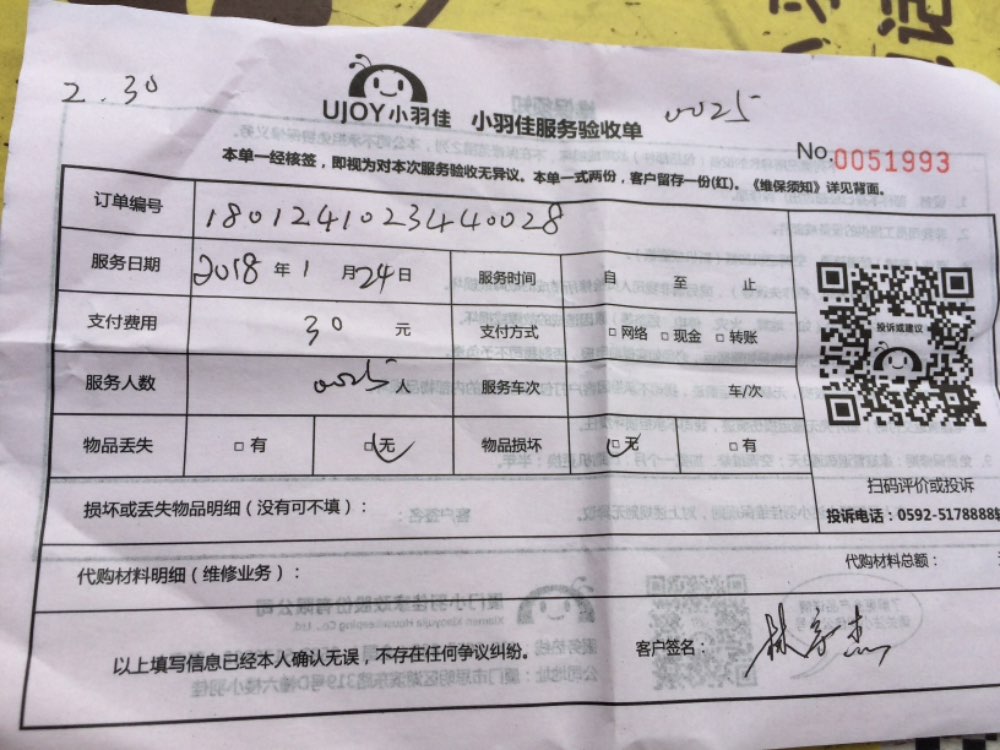 2.30
UJOY小羽佳 小羽佳服务验收单 0025
No.0051993
本单一经核签，即视为对本次服务验收无异议。本单一式两份，客户留存一份(红)。《维保须知》详见背面。
订单编号 18012410234440028
服务日期 2018 年 1 月 24 日 服务时间 自 至 止
支付费用 30 元 支付方式 □网络 □现金 □转账
服务人数 0025人 服务车次 车/次
物品丢失 □有 □无 物品损坏 □无 □有
投诉或建议
扫码评价或投诉
损坏或丢失物品明细（没有可不填）：
投诉电话：0592-5178888
代购材料明细（维修业务）：
代购材料总额：
以上填写信息已经本人确认无误，不存在任何争议纠纷。
客户签名：